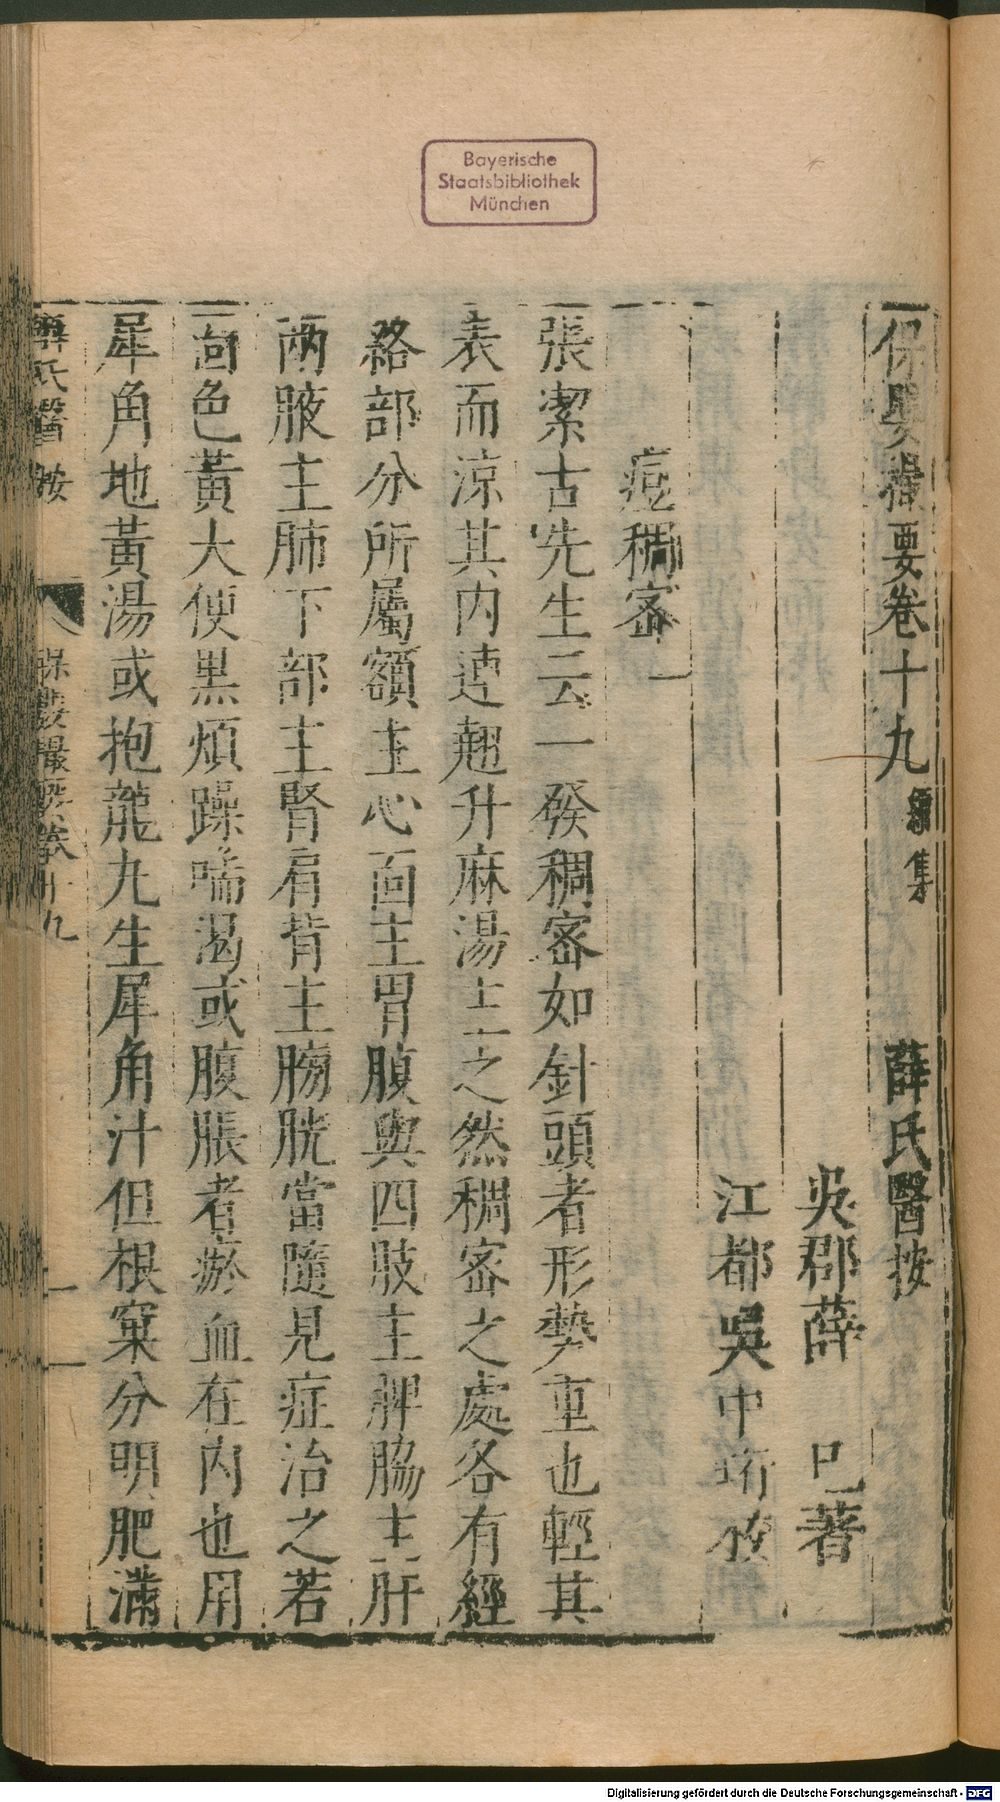 Bayerische
Staatsbibliothek
München
保嬰撮要卷十九 續集 薛氏醫按
吳郡薛 已著
江都吳中珩校
痘稠密一
張潔古先生云一發稠密如針頭者形勢重也輕其
表而涼其內連翹升麻湯主之然稠密之處各有經
絡部分所屬額主心面主胃腹與四肢主脾脇主肝
兩腋主肺下部主腎肩背主膀胱當隨見症治之若
面色黃大便黑煩躁喘渴或腹脹者瘀血在內也用
犀角地黃湯或抱龍丸生犀角汁但根窠分明肥滿
薛氏醫按 保嬰撮要卷十九 一
Digitalisierung gefördert durch die Deutsche Forschungsgemeinschaft - DFG